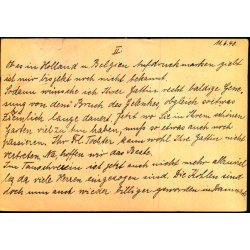 11.6.40.
II
Ob es in Holland u. Belgien Aufdruckmarken gibt
ist mir bisjetzt noch nicht bekannt.
Sodann wünsche ich Ihrer Gattin recht baldige Gene-
sung von dem Bruch des Gelenkes, obgleich so etwas
ziemlich lange dauert. Jetzt wo Sie in Ihrem schönen
Garten viel zu tun haben, muss so etwas auch noch
passieren. Ihr Frl. Tochter kann wohl Ihre Gattin nicht
vertreten. Na, hoffen wir das Beste.
Im Tauschverein ist jetzt auch nicht mehr allzuviel
los, da viele Herren eingezogen sind. Die Kohlen sind
doch nun auch wieder billiger geworden im Sommer